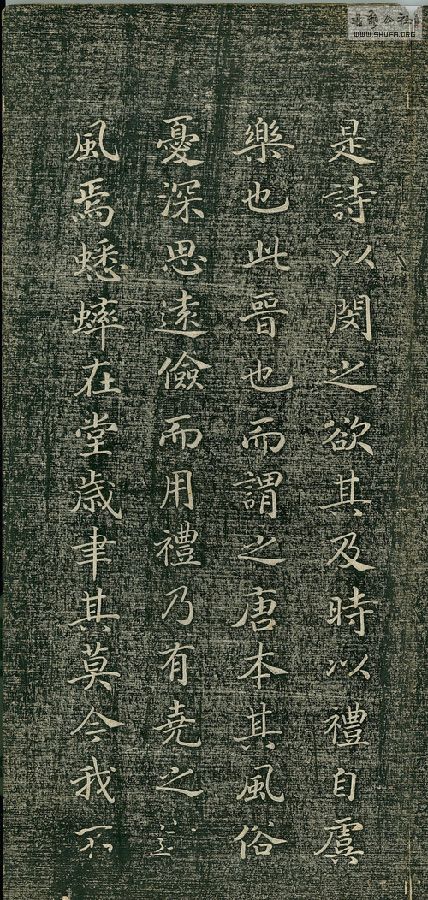 是詩以閔之欲其及時以禮自虞
樂也此晉也而謂之唐本其風俗
憂深思遠儉而用禮乃有堯之
風焉蟋蟀在堂歲聿其莫今我不
WWW.SHUFA.ORG